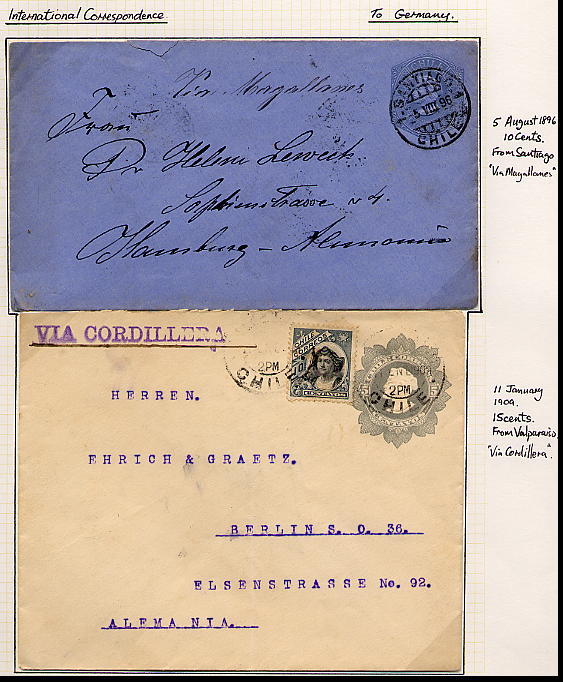 International Correspondence
To Germany.
Via Magallanes
CHILE
SANTIAGO 1
5 VIII 96
CHILE
Frau
Dr Helene Leweck
Sophienstrasse No 4.
Hamburg - Alemania
5 August 1896
10 Cents.
From Santiago
"Via Magallanes"
VIA CORDILLERA
2PM
CHILE
CHILE
CORREOS
10
CENTAVOS
2PM
CHILE
CENTAVOS
HERREN.
EHRICH & GRAETZ.
BERLIN S. O. 36.
ELSENSTRASSE No. 92.
ALEMANIA.
11 January
1909.
15 cents.
From Valparaiso
"Via Cordillera".